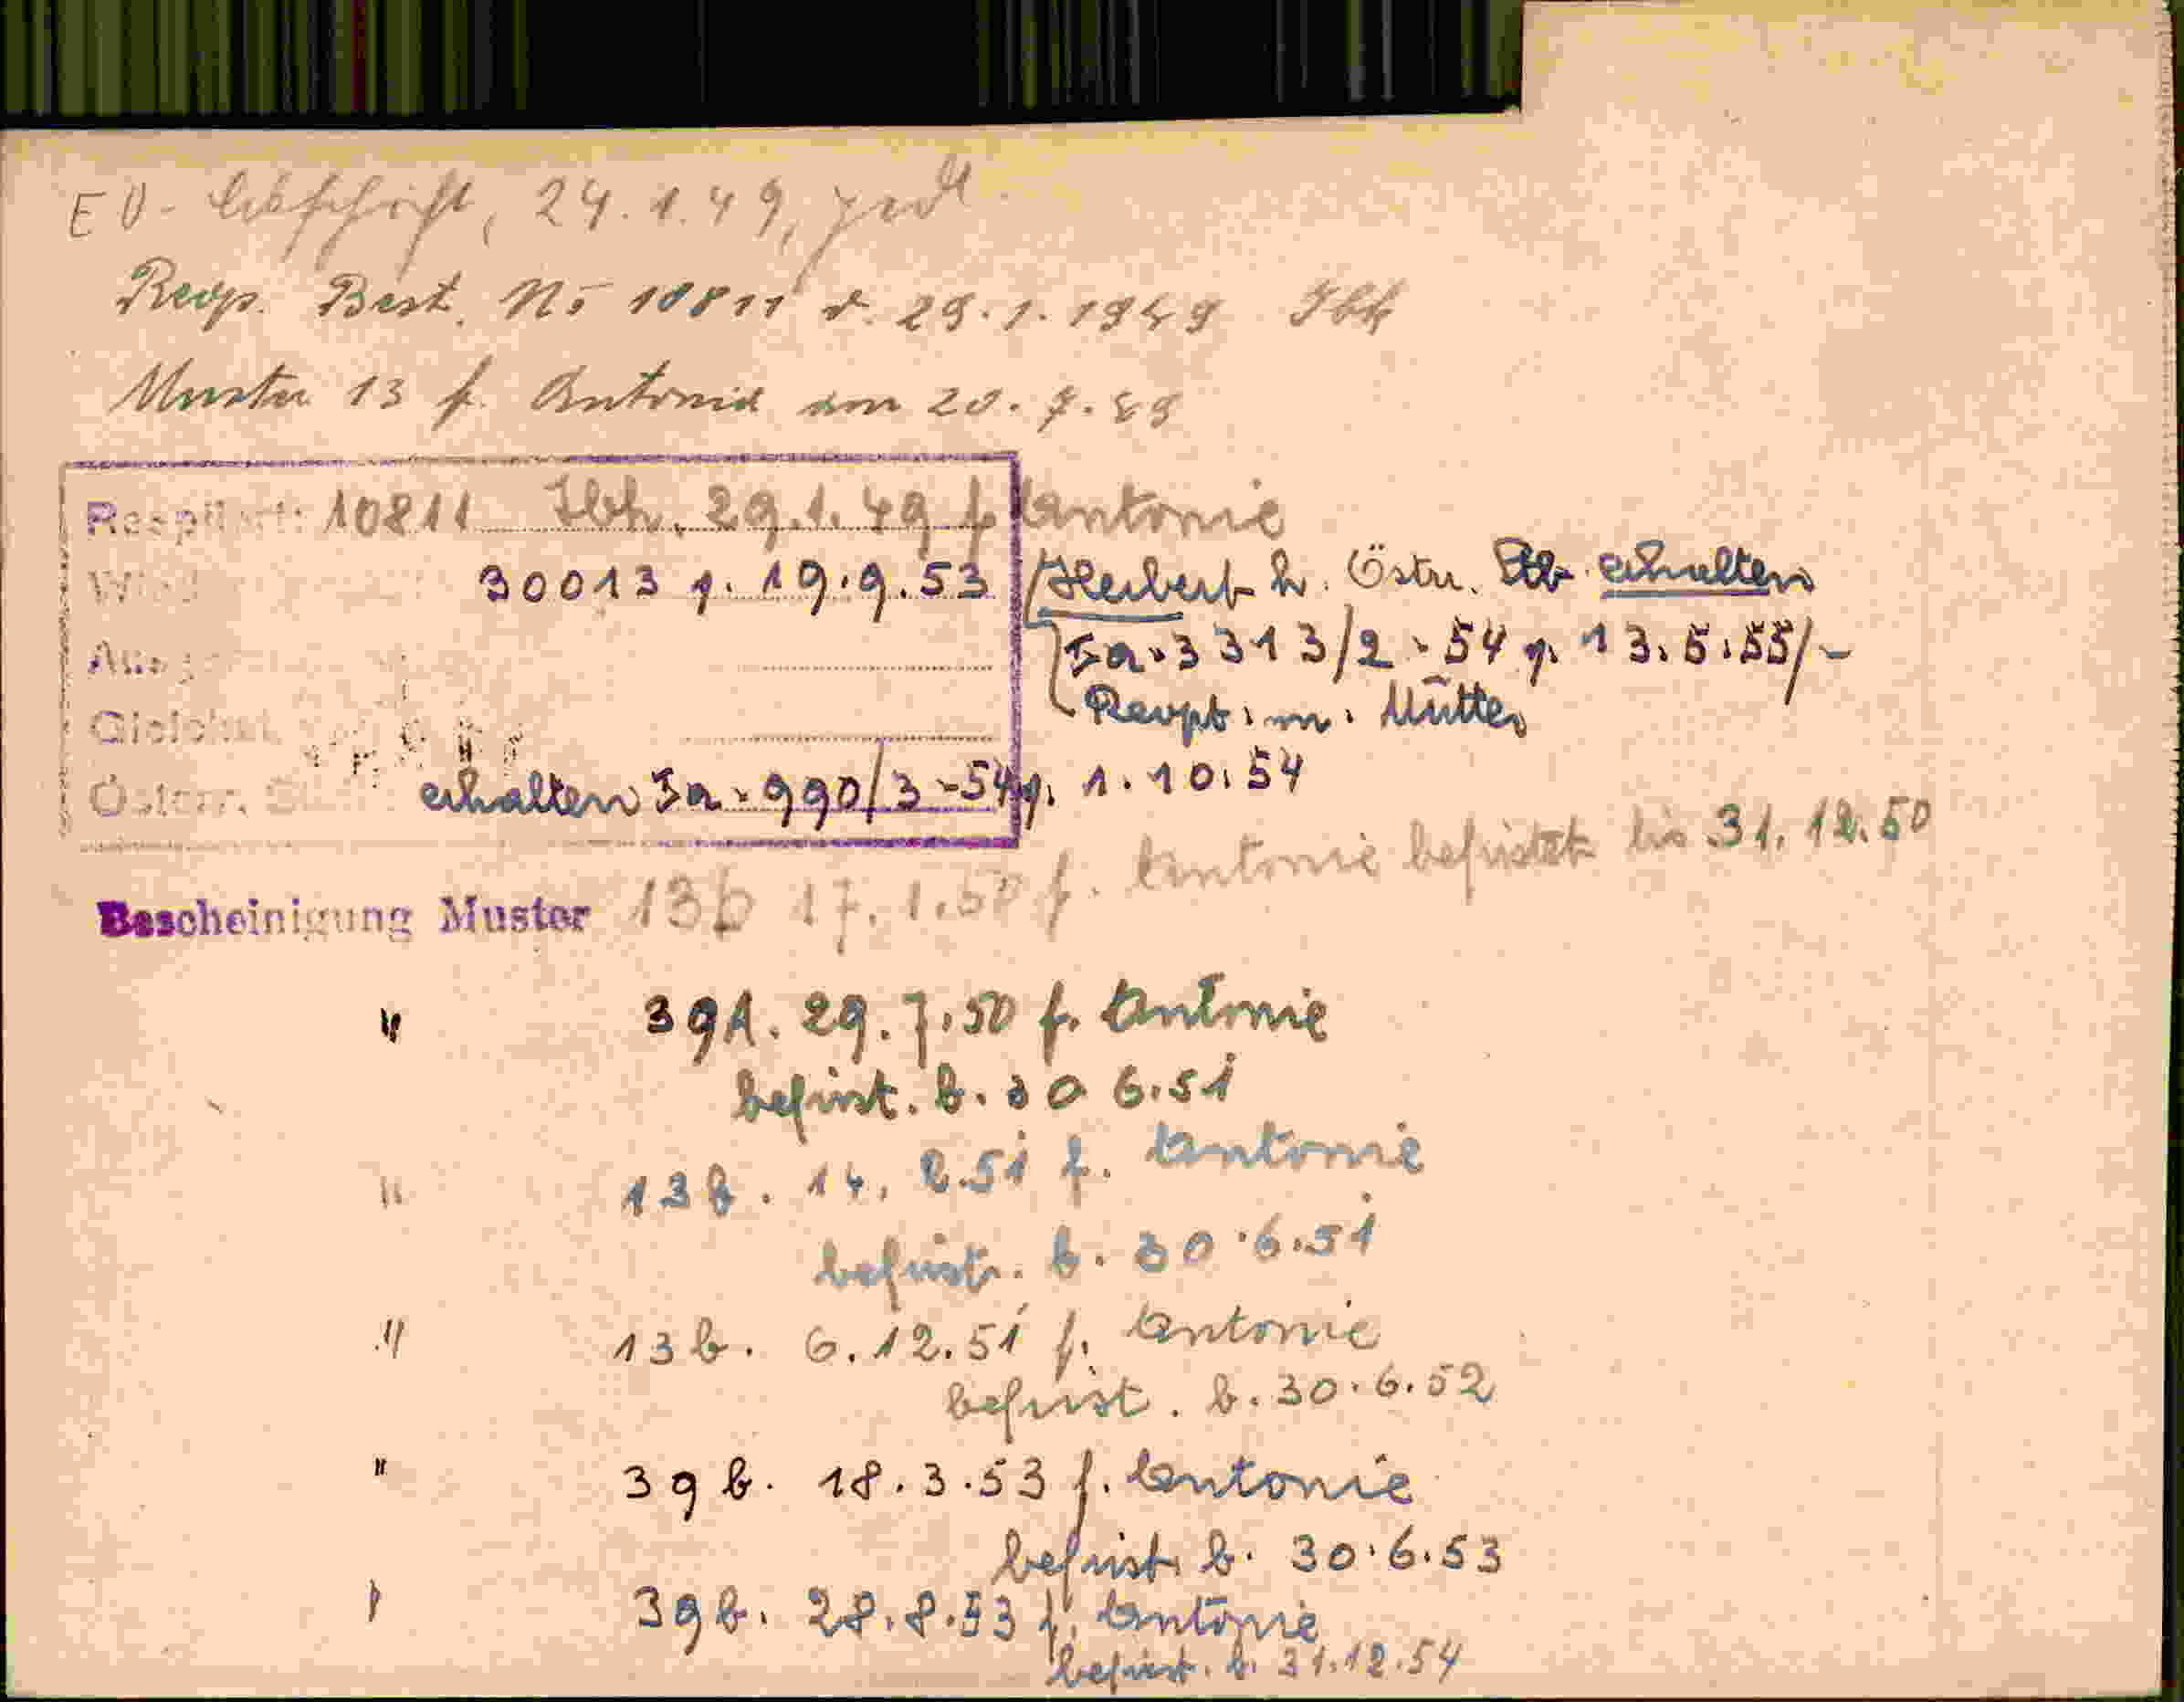 EV-Abschrift, 24.1.49,
Reop. Best. No 10811 v. 29.1.1949 Ibk
Muster 13 f. Antonie am 20.7.49
10811 Ibk. 29.1.49 f. Antonie
30013 v. 19.9.53 Herbert h. Östr. Stb. erhalten
Ia-3313/2-54 v. 13.5.55/-
Reopt. m. Mutter
Österr. St erhalten Ia-990/3-54 v. 1.10.54
Bescheinigung Muster 13b 17.1.50 f. Antonie befristet bis 31.12.50
" 39A. 29.7.50 f. Antonie
befrist. b. 30 6.51
" 13b. 14. 2.51 f. Antonie
befrist. b. 30.6.51
" 13b. 6.12.51 f. Antonie
befrist. b. 30.6.52
" 39b. 18.3.53 f. Antonie
befrist. b. 30.6.53
" 39b. 28.8.53 f. Antonie
befrist. b. 31.12.54